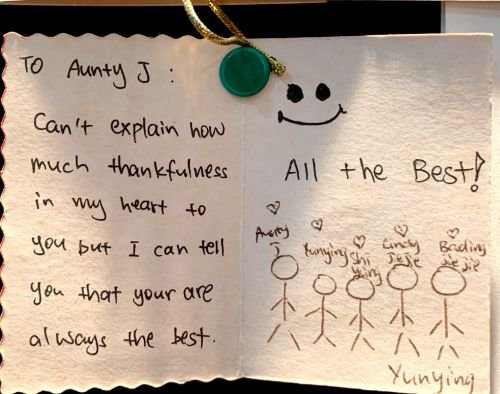 TO Aunty J :
Can't explain how
much thankfulness
in my heart to
you but I can tell
you that your are
always the best.
All the Best!
Aunty J
Yunying
Shi Ying
Cindy JieJie
Baoling Jie Jie
Yunying